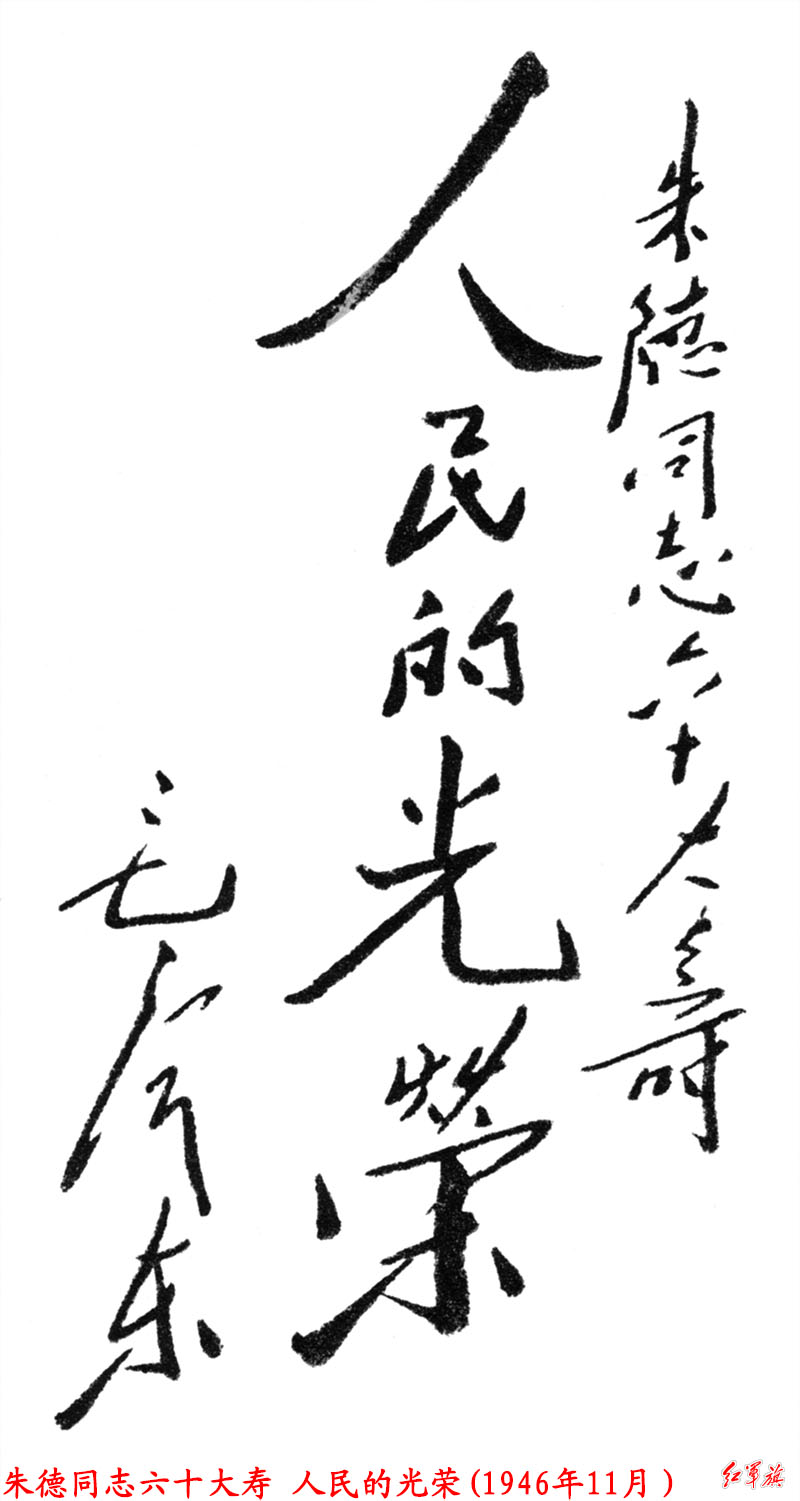 朱德同志六十大壽
人民的光榮
毛泽东
朱德同志六十大寿 人民的光荣(1946年11月)
红军旗